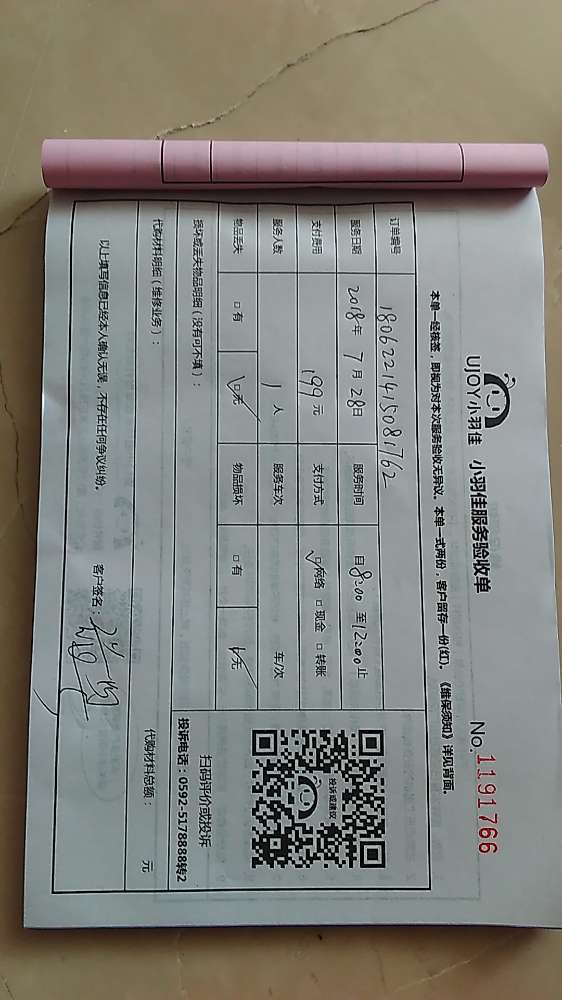 UJOY小羽佳 小羽佳服务验收单 No.1191766
本单一经核签，即视为对本次服务验收无异议。本单一式两份，客户留存一份(红)。《维保须知》详见背面。
订单编号 1806221415081762
服务日期 2018年7月28日 服务时间 自8:00至12:00止
支付费用 199元 支付方式 ☑网络 □现金 □转账
服务人数 1人 服务车次 车/次
物品丢失 □有 ☑无 物品损坏 □有 ☑无
投诉或建议
扫码评价或投诉
投诉电话：0592-5178888转2
损坏或丢失物品明细（没有可不填）：
代购材料明细（维修业务）： 代购材料总额： 元
以上填写信息已经本人确认无误，不存在任何争议纠纷。 客户签名：